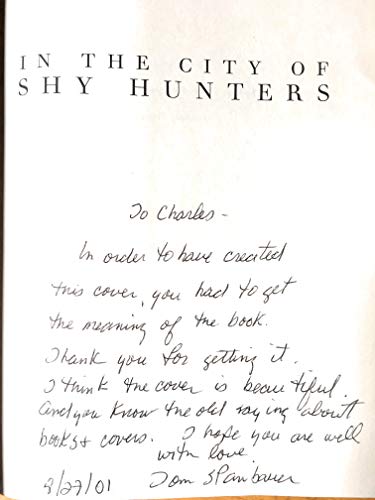 IN THE CITY OF
SHY HUNTERS
To Charles-
In order to have created
this cover, you had to get
the meaning of the book.
Thank you for getting it.
I think the cover is beautiful.
And you know the old saying about
books & covers. I hope you are well
with love.
8/27/01 Tom Spanbauer